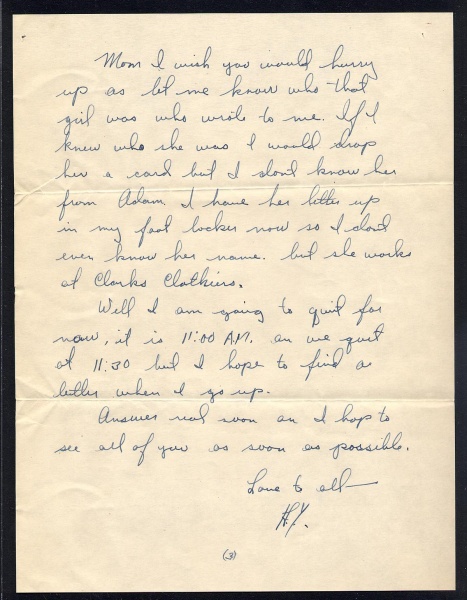 Mom I wish you would hurry
up as let me know who that
girl was who wrote to me. If I
knew who she was I would drop
her a card but I dont know her
from Adam. I have her letter up
in my foot locker now so I dont
even know her name. but she works
at Clarks Clothiers.
Well I am going to quit for
now, it is 11:00 A.M. an we quit
at 11:30 but I hope to find a
letter when I go up.
Answer real soon an I hop to
see all of you as soon as possible.
Love to all
H.Y.
(3)